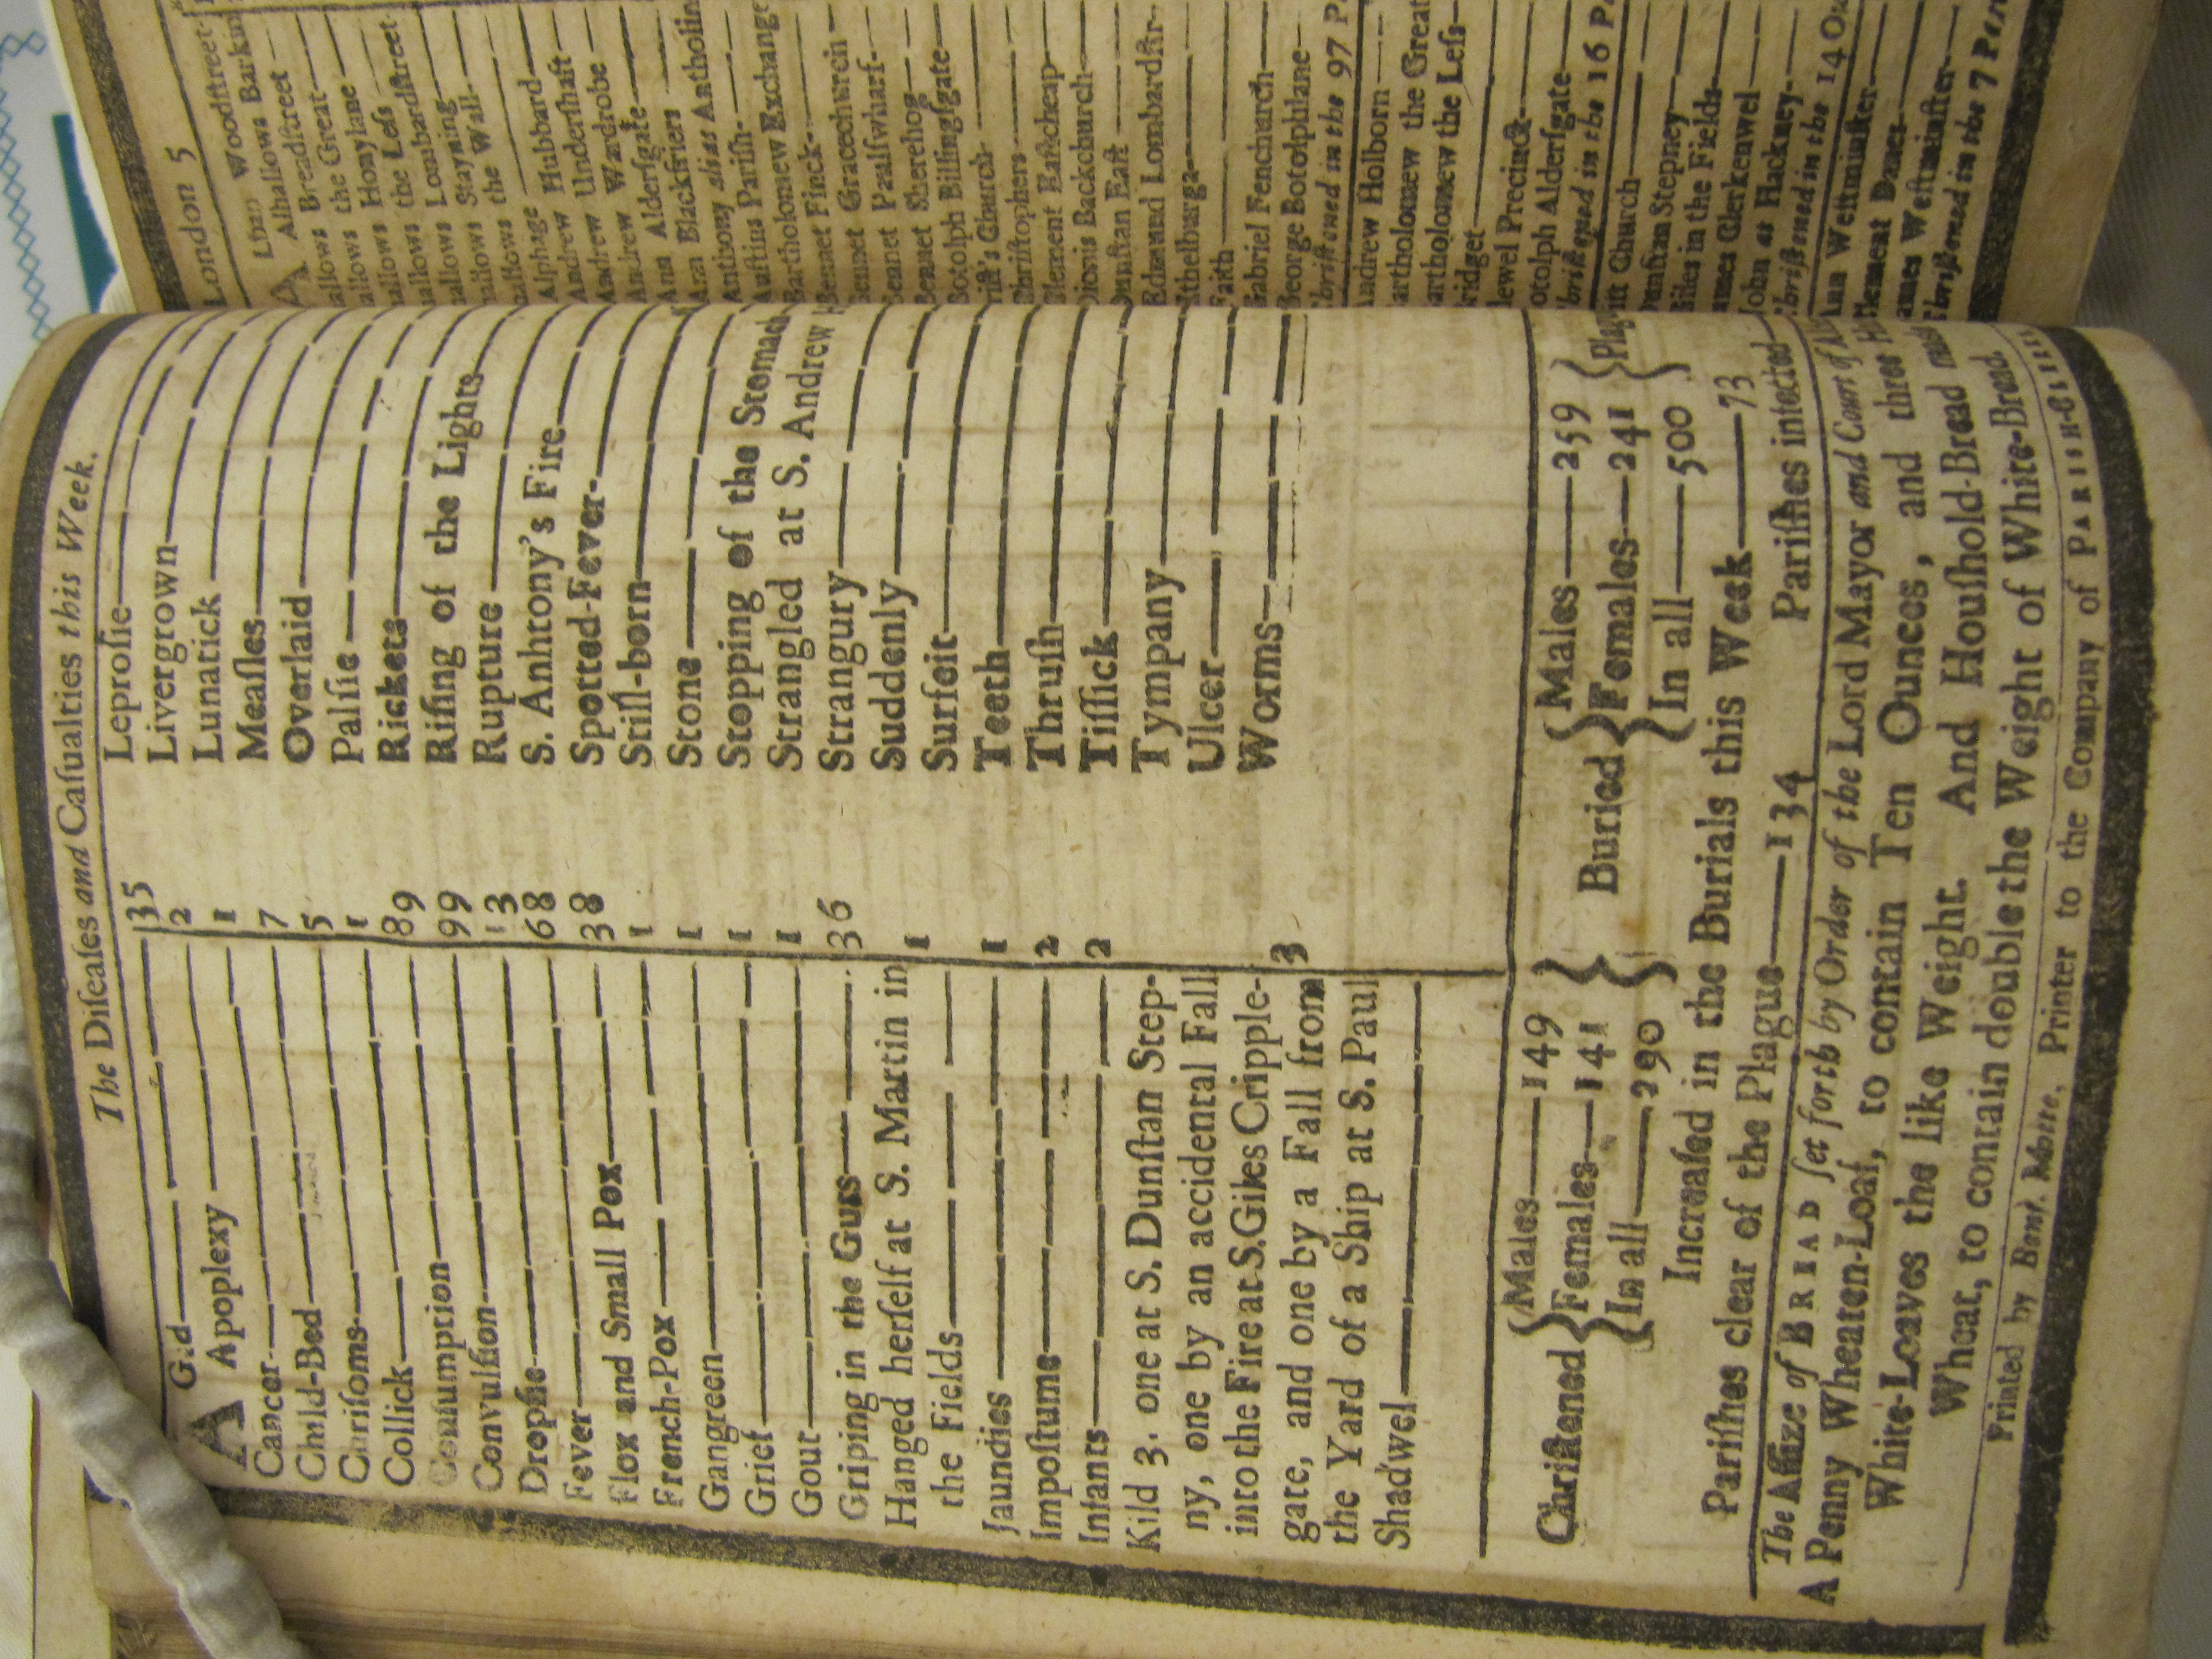 The Diſeaſes and Caſualties this Week.
AGed 35
Apoplexy 2
Cancer 1
Child-Bed 7
Chriſoms 5
Collick 1
Conſumption 89
Convulſion 99
Dropſie 13
Fever 68
Flox and Small Pox 38
French-Pox 1
Gangreen 1
Grief 1
Gout 1
Griping in the Guts 36
Hanged herſelf at S. Martin in
the Fields 1
Jaundies 1
Impoſtume 2
Infants 2
Kild 3. one at S. Dunſtan Step-
ny, one by an accidental Fall
into the Fire at S. Giles Cripple-
gate, and one by a Fall from
the Yard of a Ship at S. Paul
Shadwel
3
Leproſie
Livergrown
Lunatick
Meaſles
Overlaid
Palſie
Rickets
Riſing of the Lights
Rupture
S. Anhtony's Fire
Spotted-Fever
Still-born
Stone
Stopping of the Stomach
Strangled at S. Andrew
Strangury
Suddenly
Surfeit
Teeth
Thruſh
Tiſſick
Tympany
Ulcer
Worms
Chriſtened { Males 149
Females 141
In all 290 }
Buried { Males 259
Females 241
In all 500 }
Increaſed in the Burials this Week 73
Pariſhes clear of the Plague 134 Pariſhes infected
The Aſſize of BREAD ſet forth by Order of the Lord Mayor and Court of
A Penny Wheaten-Loaf, to contain Ten Ounces, and three
White-Loaves the like Weight. And Houſhold-Bread
Wheat, to contain double the Weight of White-Bread.
Printed by Benj. Motte, Printer to the Company of PARISH-CLERKS
London 5
Alban Woodſtreet
Alhallows
Breadſtreet
the Great
Honylane
the Leſs
Lombardſtreet
Stayning
the Wall
Alphage
Andrew Hubbard
Andrew Underſhaft
Andrew Wardrobe
Ann Alderſgate
Ann Blackfriers
Anthony alias Antholin
Auſtins Pariſh
Bartholomew Exchange
Bennet Finck
Bennet Gracechurch
Bennet Paulſwharf
Bennet Sherehog
Botolph Billingſgate
Chriſt's Church
Chriſtophers
Clement Eaſtcheap
Dionis Backchurch
Dunſtan Eaſt
Edmund Lombardſtr
Ethelburga
Faith
Gabriel Fenchurch
George Botolphlane
Chriſtened in the 97
Andrew Holborn
Bartholomew the Great
Bartholomew the Leſs
Bridget
Bridewel Precinct
Botolph Alderſgate
Chriſtened in the 16
Chriſt Church
Dunſtan Stepney
Giles in the Fields
James Clerkenwel
John at Hackney
Chriſtened in the 14
Ann Weſtminſter
Clement Danes
James Weſtminſter
Chriſtened in the 7